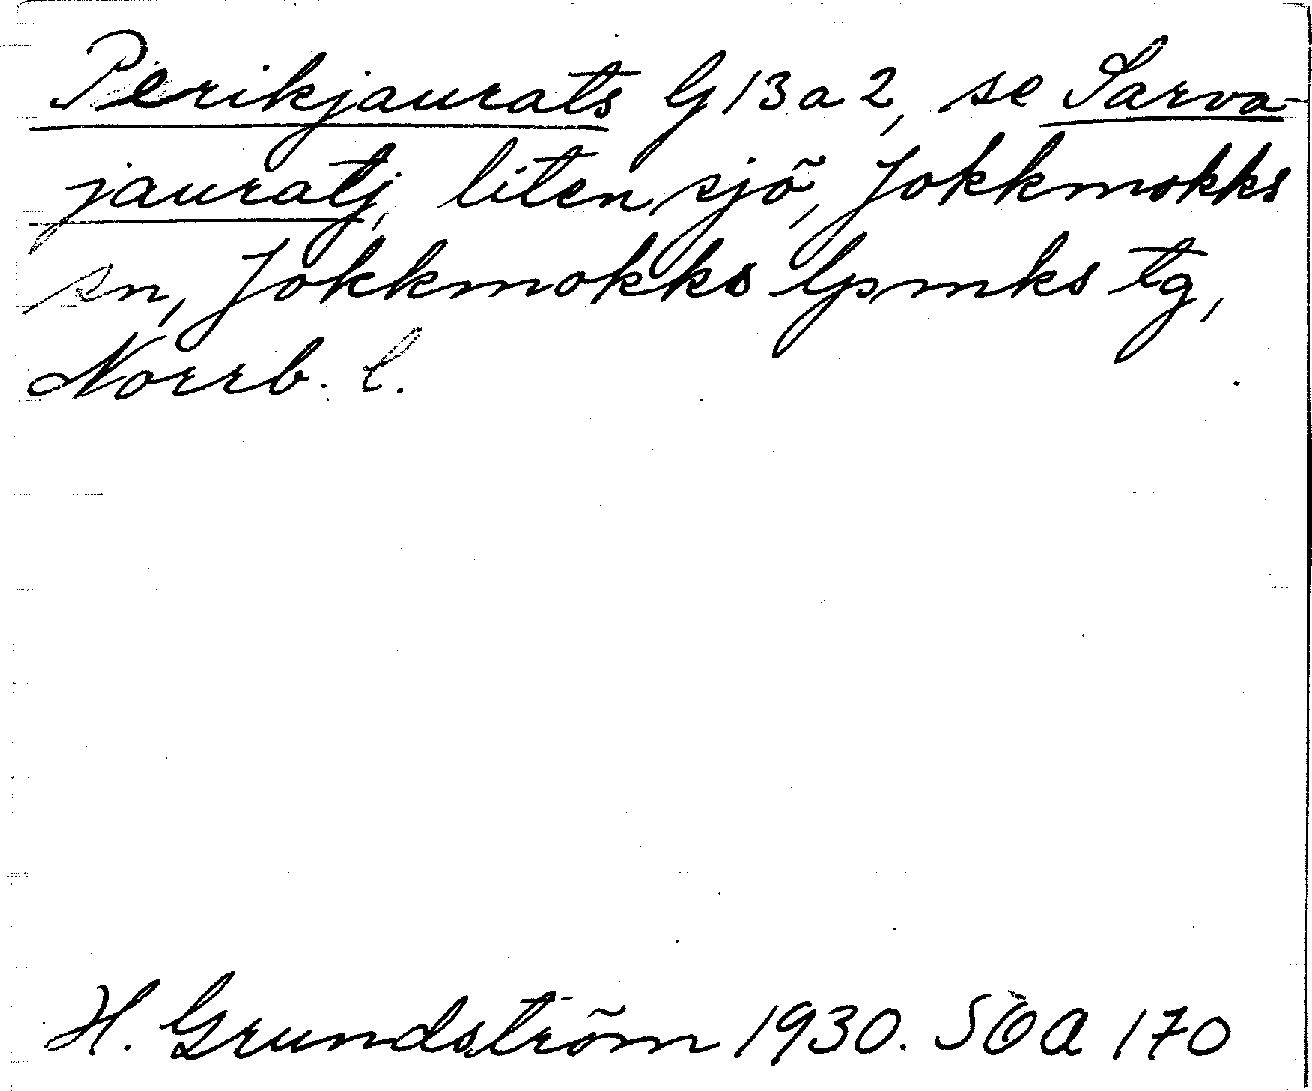 Perikjaurats G13a2, se Sarva-
jauratj, liten sjö, Jokkmokks
sn, Jokkmokks lpmks tg,
Norrb. l.
H. Grundström 1930. SOA 170